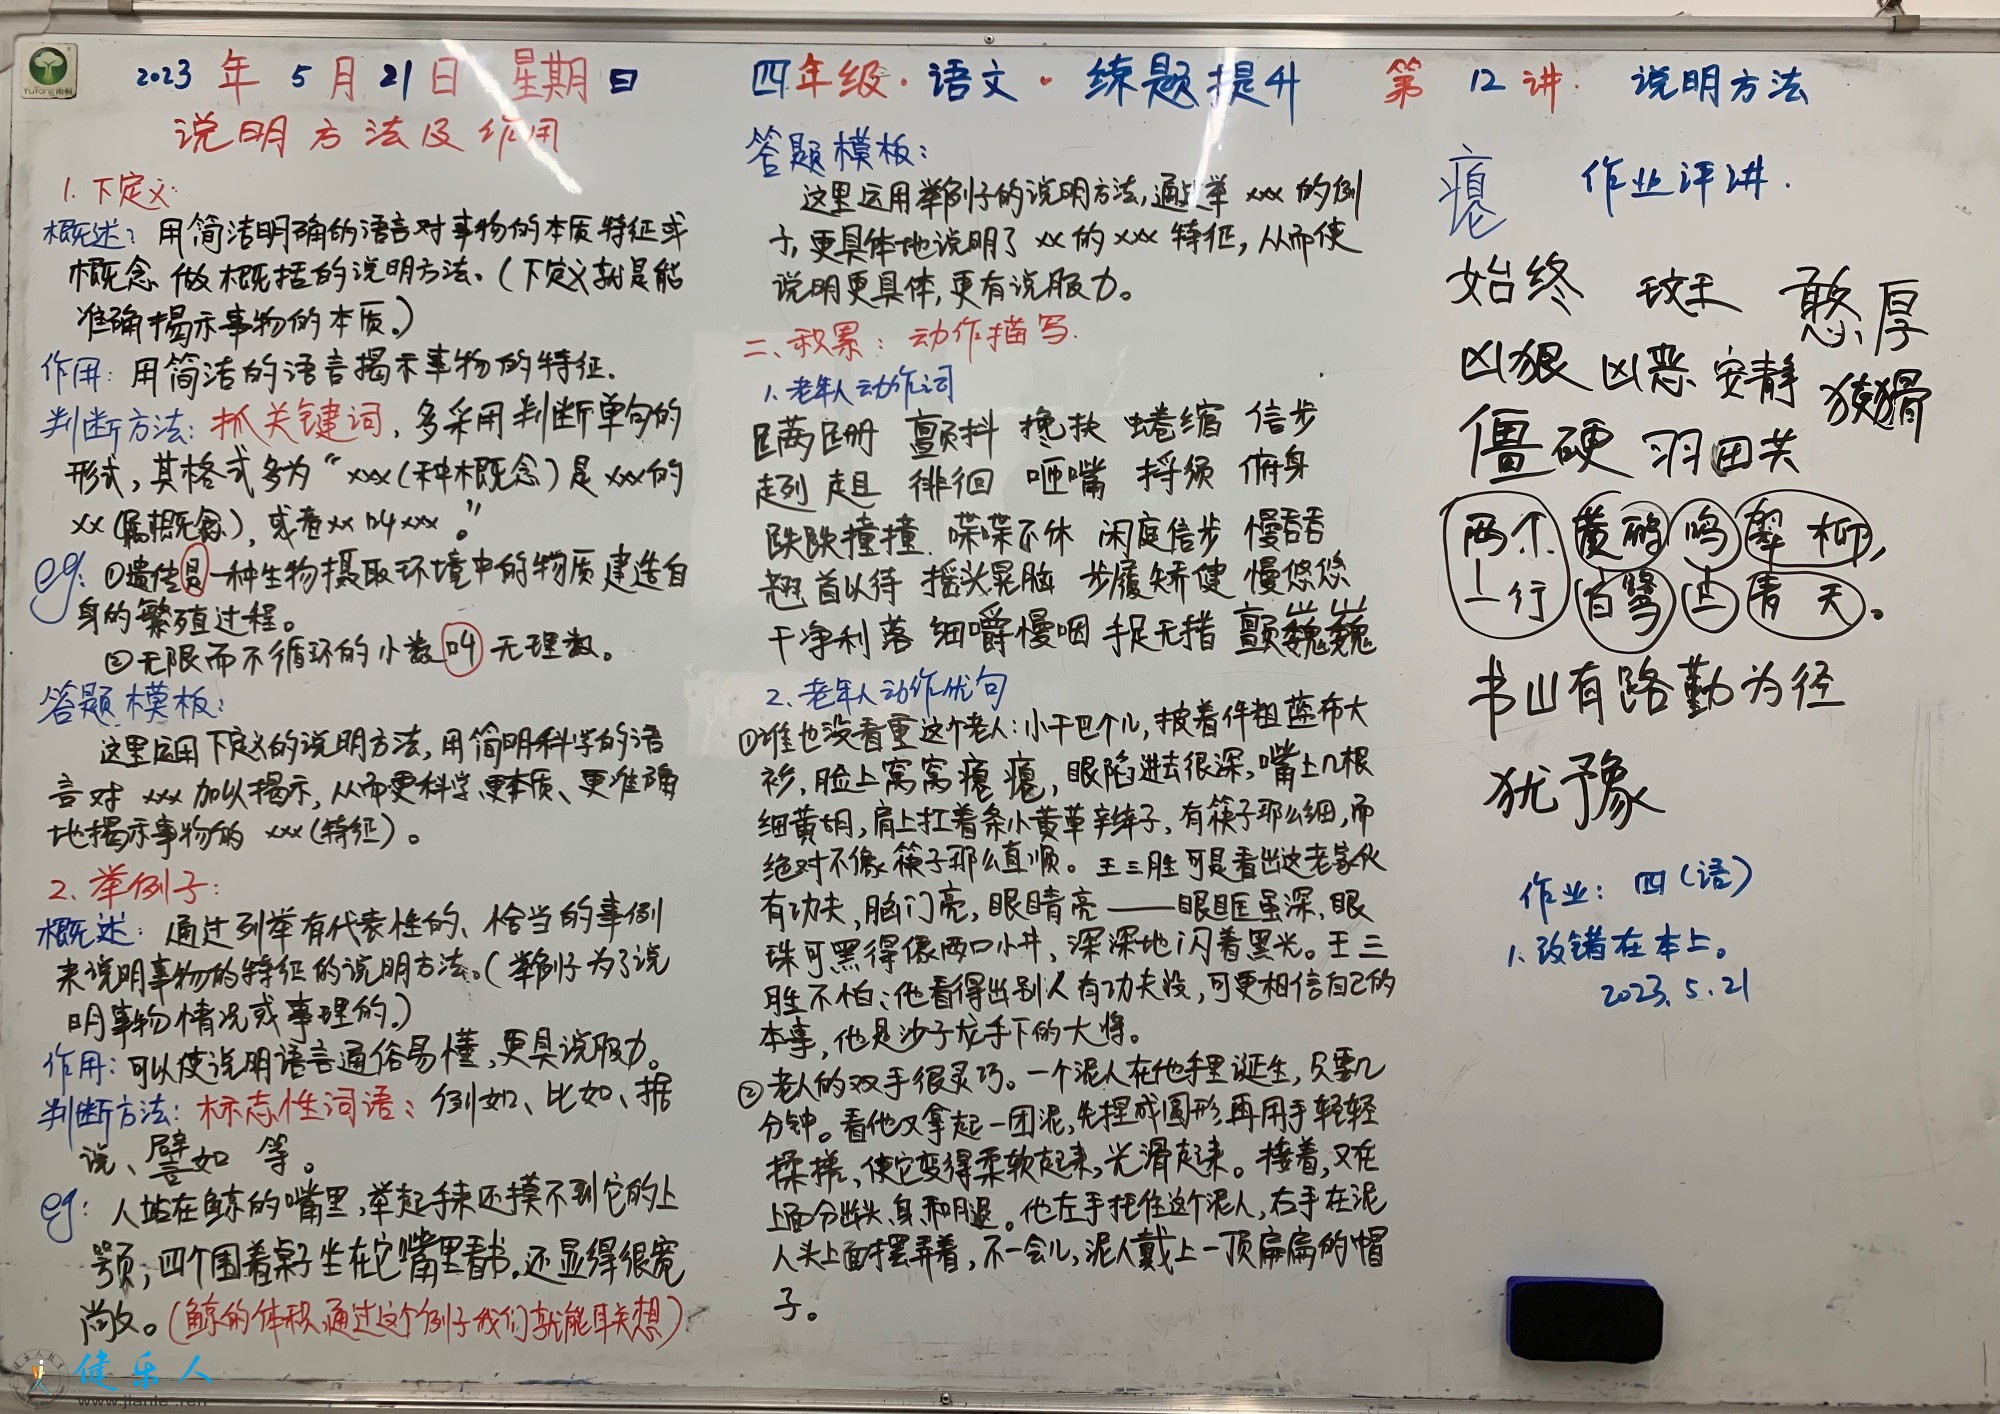 2023年5月21日 星期日
四年级·语文·练题提升
第12讲. 说明方法
说明方法及作用
1. 下定义:
概述: 用简洁明确的语言对事物的本质特征或
概念做概括的说明方法。(下定义就是能
准确揭示事物的本质。)
作用: 用简洁的语言揭示事物的特征.
判断方法: 抓关键词, 多采用判断单句的
形式, 其格式多为“xxx(种概念)是xxx的
xx(属概念), 或者xx叫xxx。”
eg: ①遗传是一种生物摄取环境中的物质建造自
身的繁殖过程。
②无限而不循环的小数叫无理数。
答题模板:
这里运用下定义的说明方法, 用简明科学的语
言对xxx加以揭示, 从而更科学、更本质、更准确
地揭示事物的xxx(特征)。
2. 举例子:
概述: 通过列举有代表性的、恰当的事例
来说明事物的特征的说明方法。(举例子为了说
明事物情况或事理的。)
作用: 可以使说明语言通俗易懂, 更具说服力。
判断方法: 标志性词语: 例如、比如、据
说、譬如 等。
eg: 人站在鲸的嘴里, 举起手来还摸不到它的上
颚; 四个围着桌子坐在它嘴里看书, 还显得很宽
敞。(鲸的体积, 通过这个例子我们就能联想)
答题模板:
这里运用举例子的说明方法, 通过举xxx的例
子, 更具体地说明了xx的xxx特征, 从而使
说明更具体, 更有说服力。
二、积累: 动作描写.
1. 老年人动作词
蹒跚 颤抖 搀扶 蜷缩 信步
趔趄 徘徊 咂嘴 捋须 俯身
跌跌撞撞 喋喋不休 闲庭信步 慢吞吞
翘首以待 摇头晃脑 步履矫健 慢悠悠
干净利落 细嚼慢咽 手足无措 颤巍巍
2. 老年人动作优句
①谁也没看重这个老人: 小干巴个儿, 披着件粗蓝布大
衫, 脸上窝窝瘪瘪, 眼陷进去很深, 嘴上几根
细黄胡, 肩上扛着条小黄草辫子, 有筷子那么细, 而
绝对不像筷子那么直顺。王三胜可是看出这老家伙
有功夫, 脑门亮, 眼睛亮——眼眶虽深, 眼
珠可黑得像两口小井, 深深地闪着黑光。王三
胜不怕: 他看得出别人有功夫没, 可更相信自己的
本事, 他是沙子龙手下的大将。
②老人的双手很灵巧。一个泥人在他手里诞生, 只要几
分钟。看他又拿起一团泥, 先捏成圆形, 再用手轻轻
揉搓, 使它变得柔软起来, 光滑起来。接着, 又在
上面分出头、身和腿。他左手托住这个泥人, 右手在泥
人头上面摆弄着, 不一会儿, 泥人戴上一顶扁扁的帽
子。
瘪 作业评讲.
始终 玟王 憨厚
凶狠 凶恶 安静 狡猾
僵硬 羽田共
两个黄鹂鸣翠柳,
一行白鹭上青天。
书山有路勤为径
犹豫
作业: 四(语)
1. 改错在本上。
2023.5.21
健乐人